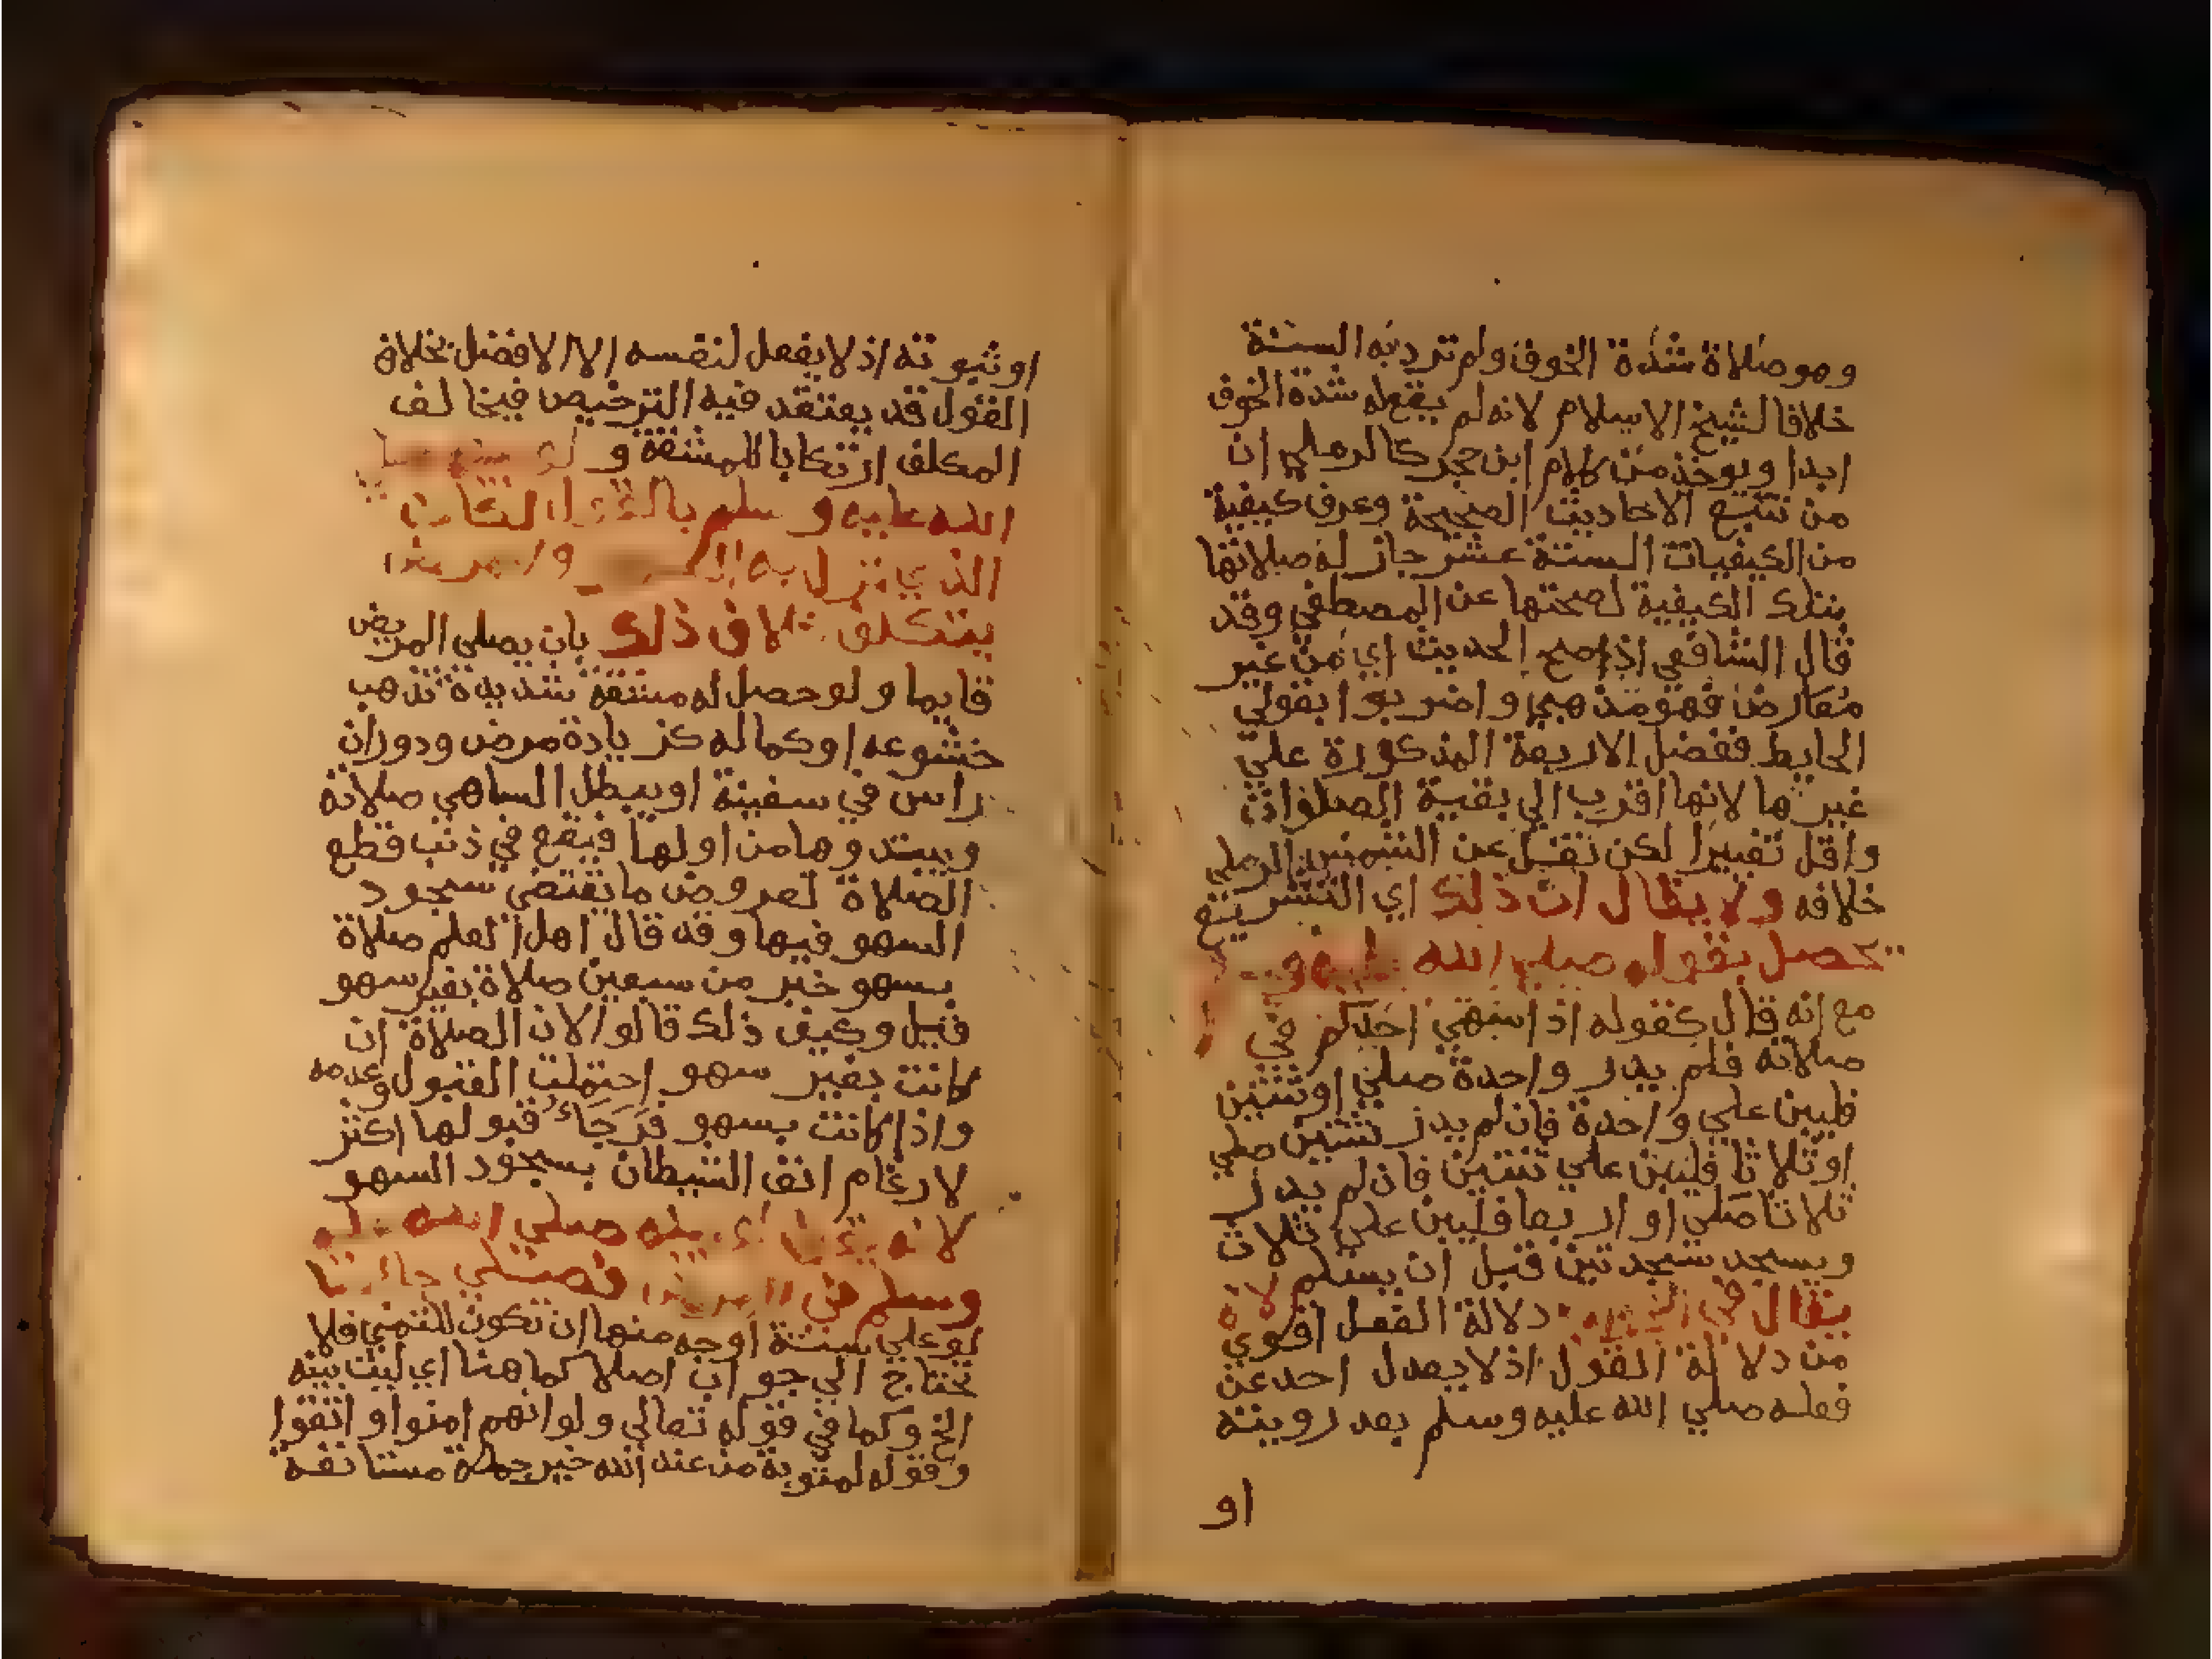 وهو صلاة شدة الخوف ولم ترد به السنة
خلافا لشيخ الاسلام لانه لم يقع له شدة الخوف
ابدا ويوخذ من كلام ابن حجر كالرملي ان
من تتبع الاحاديث الصحيحة وعرف كيفية
من الكيفيات الستة عشر جاز له صلاتها
بتلك الكيفية لصحتها عن المصطفي وقد
قال الشافعي اذا صح الحديث اي من غير
معارض فهو مذهبي واضربوا بقولي
الحايط ففضل الاربعة المذكورة علي
غيرها لانها اقرب الي بقية الصلوات
واقل تغييرا لكن نقل عن الشمس الرملي
خلافه ولا يقال ان ذلك اي التشريع
يحصل بقوله صلي الله عليه
مع انه قال كقوله اذا سهي احدكم في
صلاته فلم يدر واحدة صلي او ثنتين
فليبن علي واحدة فان لم يدر ثنتين صلي
او ثلاثا فليبن علي ثنتين فان لم يدر
ثلاثا صلي او اربعا فليبن علي ثلاث
ويسجد سجدتين قبل ان يسلم لانه
يقال في دلالة الفعل اقوي
من دلالة القول اذ لا يعدل احد عن
فعله صلي الله عليه وسلم بعد رويته
او
او ثبوته اذ لا يفعل لنفسه الا الافضل بخلاف
القول قد يعتقد فيه الترخيص فيخالف
المكلف ارتكابا للمشقة و لو
الله عليه وسلم بالقول لكان
الذي نزل به
يتكلف خلاف ذلك بان يصلي المريض
قايما ولو حصل له مشقة شديدة تذهب
خشوعه او كماله كزيادة مرض ودوران
راس في سفينة او يبطل الساهي صلاته
ويبتدوها من اولها فيقع في ذنب قطع
الصلاة لعروض ما يقتضي سجود
السهو فيها وقد قال اهل العلم صلاة
بسهو خير من سبعين صلاة بغير سهو
قيل وكيف ذلك قالوا لان الصلاة ان
كانت بغير سهو احتملت القبول وعدمه
واذا كانت بسهو فرجاء قبولها اكثر
لارغام انف الشيطان بسجود السهو
لانه صلي الله عليه
وسلم في المرض فصلي جالسا
لو علي ستة اوجه منها ان تكون للتمني فلا
تحتاج الي جواب اصلا كما هنا اي ليت بينه
الخ وكما في قوله تعالي ولو انهم امنوا واتقوا
وقوله لمثوبة من عند الله خير جملة مستانفة